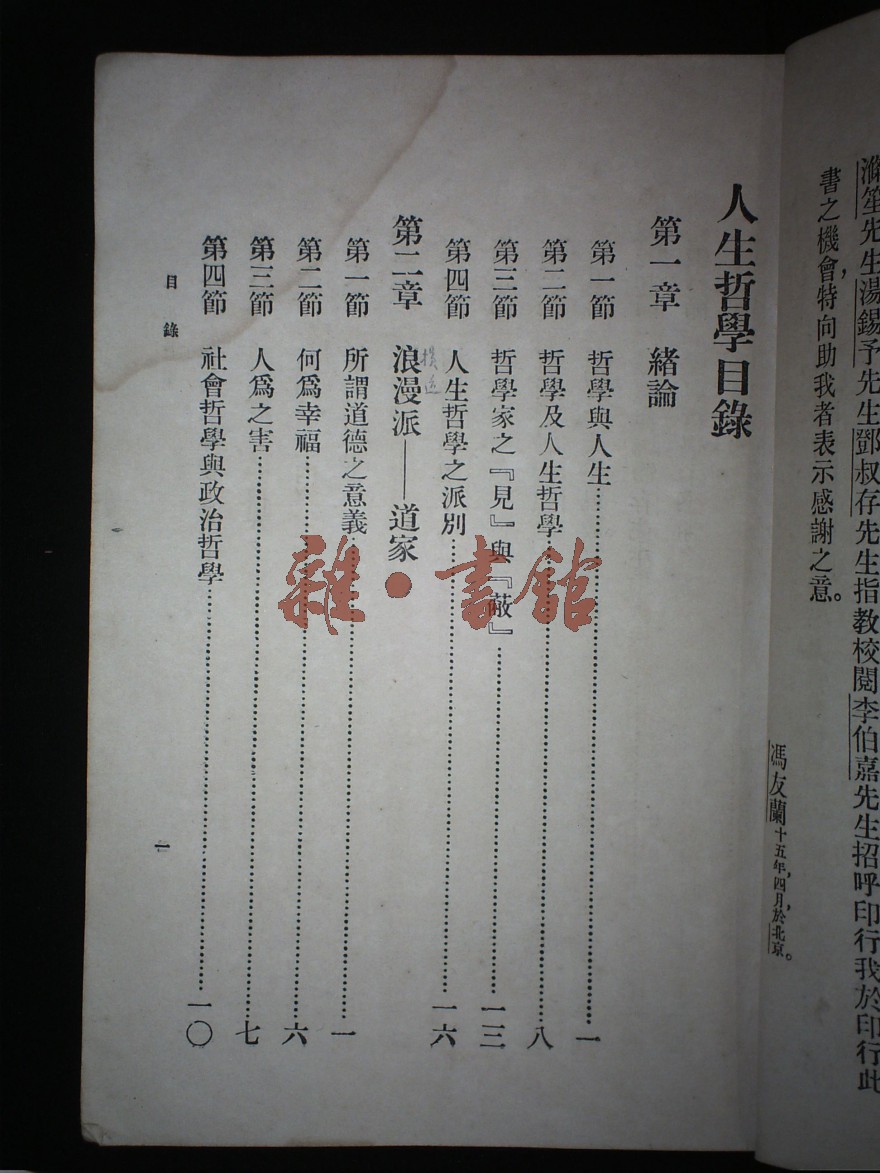 滌笙先生湯錫予先生鄧叔存先生指教校閱李伯嘉先生招呼印行我於印行此
書之機會，特向助我者表示感謝之意。
馮友蘭十五年，四月，於北京。
人生哲學目錄
第一章 緒論
第一節 哲學與人生……一
第二節 哲學及人生哲學……八
第三節 哲學家之『見』與『蔽』……一三
第四節 人生哲學之派別……一六
第二章 浪漫派——道家
第一節 所謂道德之意義……一
第二節 何爲幸福……六
第三節 人爲之害……七
第四節 社會哲學與政治哲學……一〇
目錄
一
雜·書館